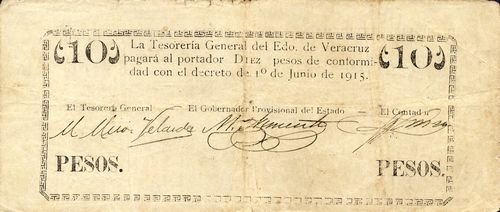 10 La Tesorería General del Edo. de Veracruz 10
pagará al portador DIEZ pesos de conformi-
dad con el decreto de 1º de Junio de 1915.
El Tesorero General El Gobernador Provisional del Estado El Contador
PESOS. PESOS.